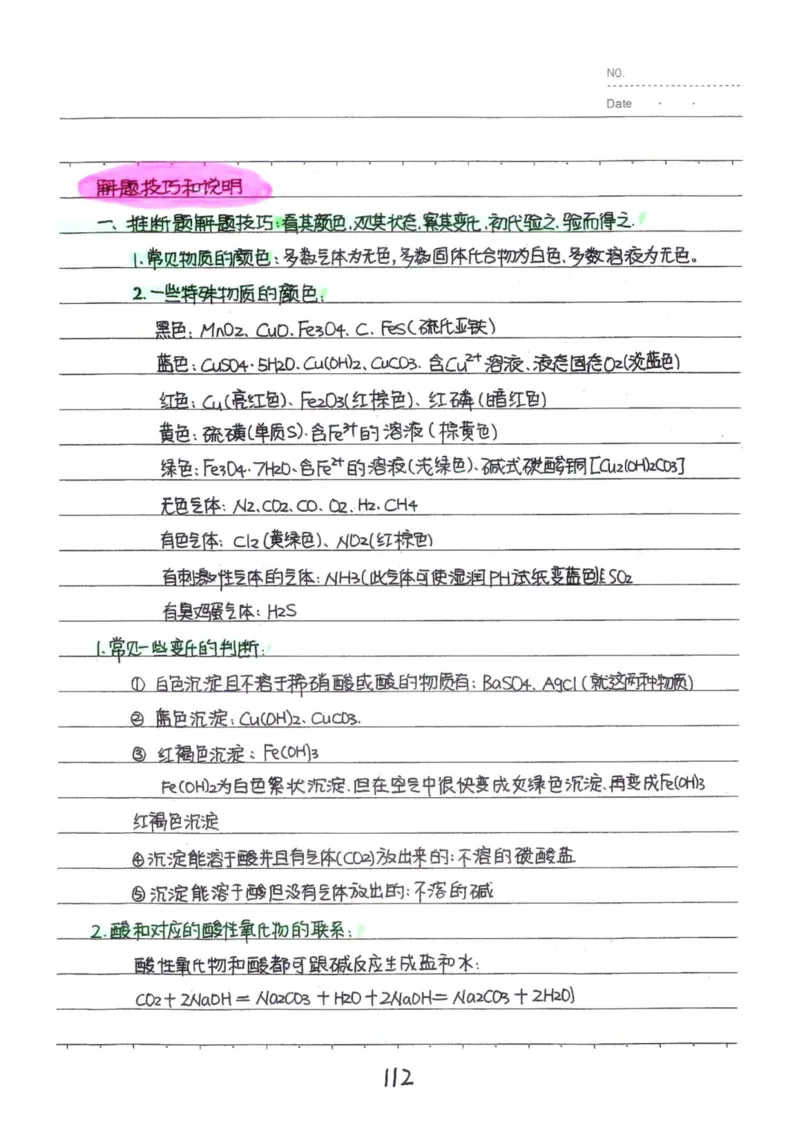 NO.
Date
解题技巧和说明
一、推断题解题技巧:看其颜色,观其状态,察其变化,初代验之,验而得之.
1.常见物质的颜色:多数气体为无色,多数固体化合物为白色,多数溶液为无色。
2.一些特殊物质的颜色:
黑色:MnO2、CuO、Fe3O4、C、FeS(硫化亚铁)
蓝色:CuSO4·5H2O、Cu(OH)2、CuCO3、含Cu²⁺溶液、液态固态O2(淡蓝色)
红色:Cu(亮红色)、Fe2O3(红棕色)、红磷(暗红色)
黄色:硫磺(单质S)、含Fe³⁺的溶液(棕黄色)
绿色:Fe3O4·7H2O、含Fe²⁺的溶液(浅绿色)、碱式碳酸铜[Cu2(OH)2CO3]
无色气体:N2、CO2、CO、O2、H2、CH4
有色气体:Cl2(黄绿色)、NO2(红棕色)
有刺激性气体的气体:NH3(此气体可使湿润PH试纸变蓝色)、SO2
有臭鸡蛋气体:H2S
1.常见一些变化的判断:
① 白色沉淀且不溶于稀硝酸或酸的物质有:BaSO4、AgCl(就这两种物质)
② 蓝色沉淀:Cu(OH)2、CuCO3.
③ 红褐色沉淀:Fe(OH)3
Fe(OH)2为白色絮状沉淀.但在空气中很快变成灰绿色沉淀、再变成Fe(OH)3
红褐色沉淀
④沉淀能溶于酸并且有气体(CO2)放出来的:不溶的碳酸盐
⑤沉淀能溶于酸但没有气体放出的:不落的碱
2.酸和对应的酸性氧化物的联系:
酸性氧化物和酸都可跟碱反应生成盐和水:
CO2+2NaOH=Na2CO3+H2O+2NaOH=Na2CO3+2H2O)
112